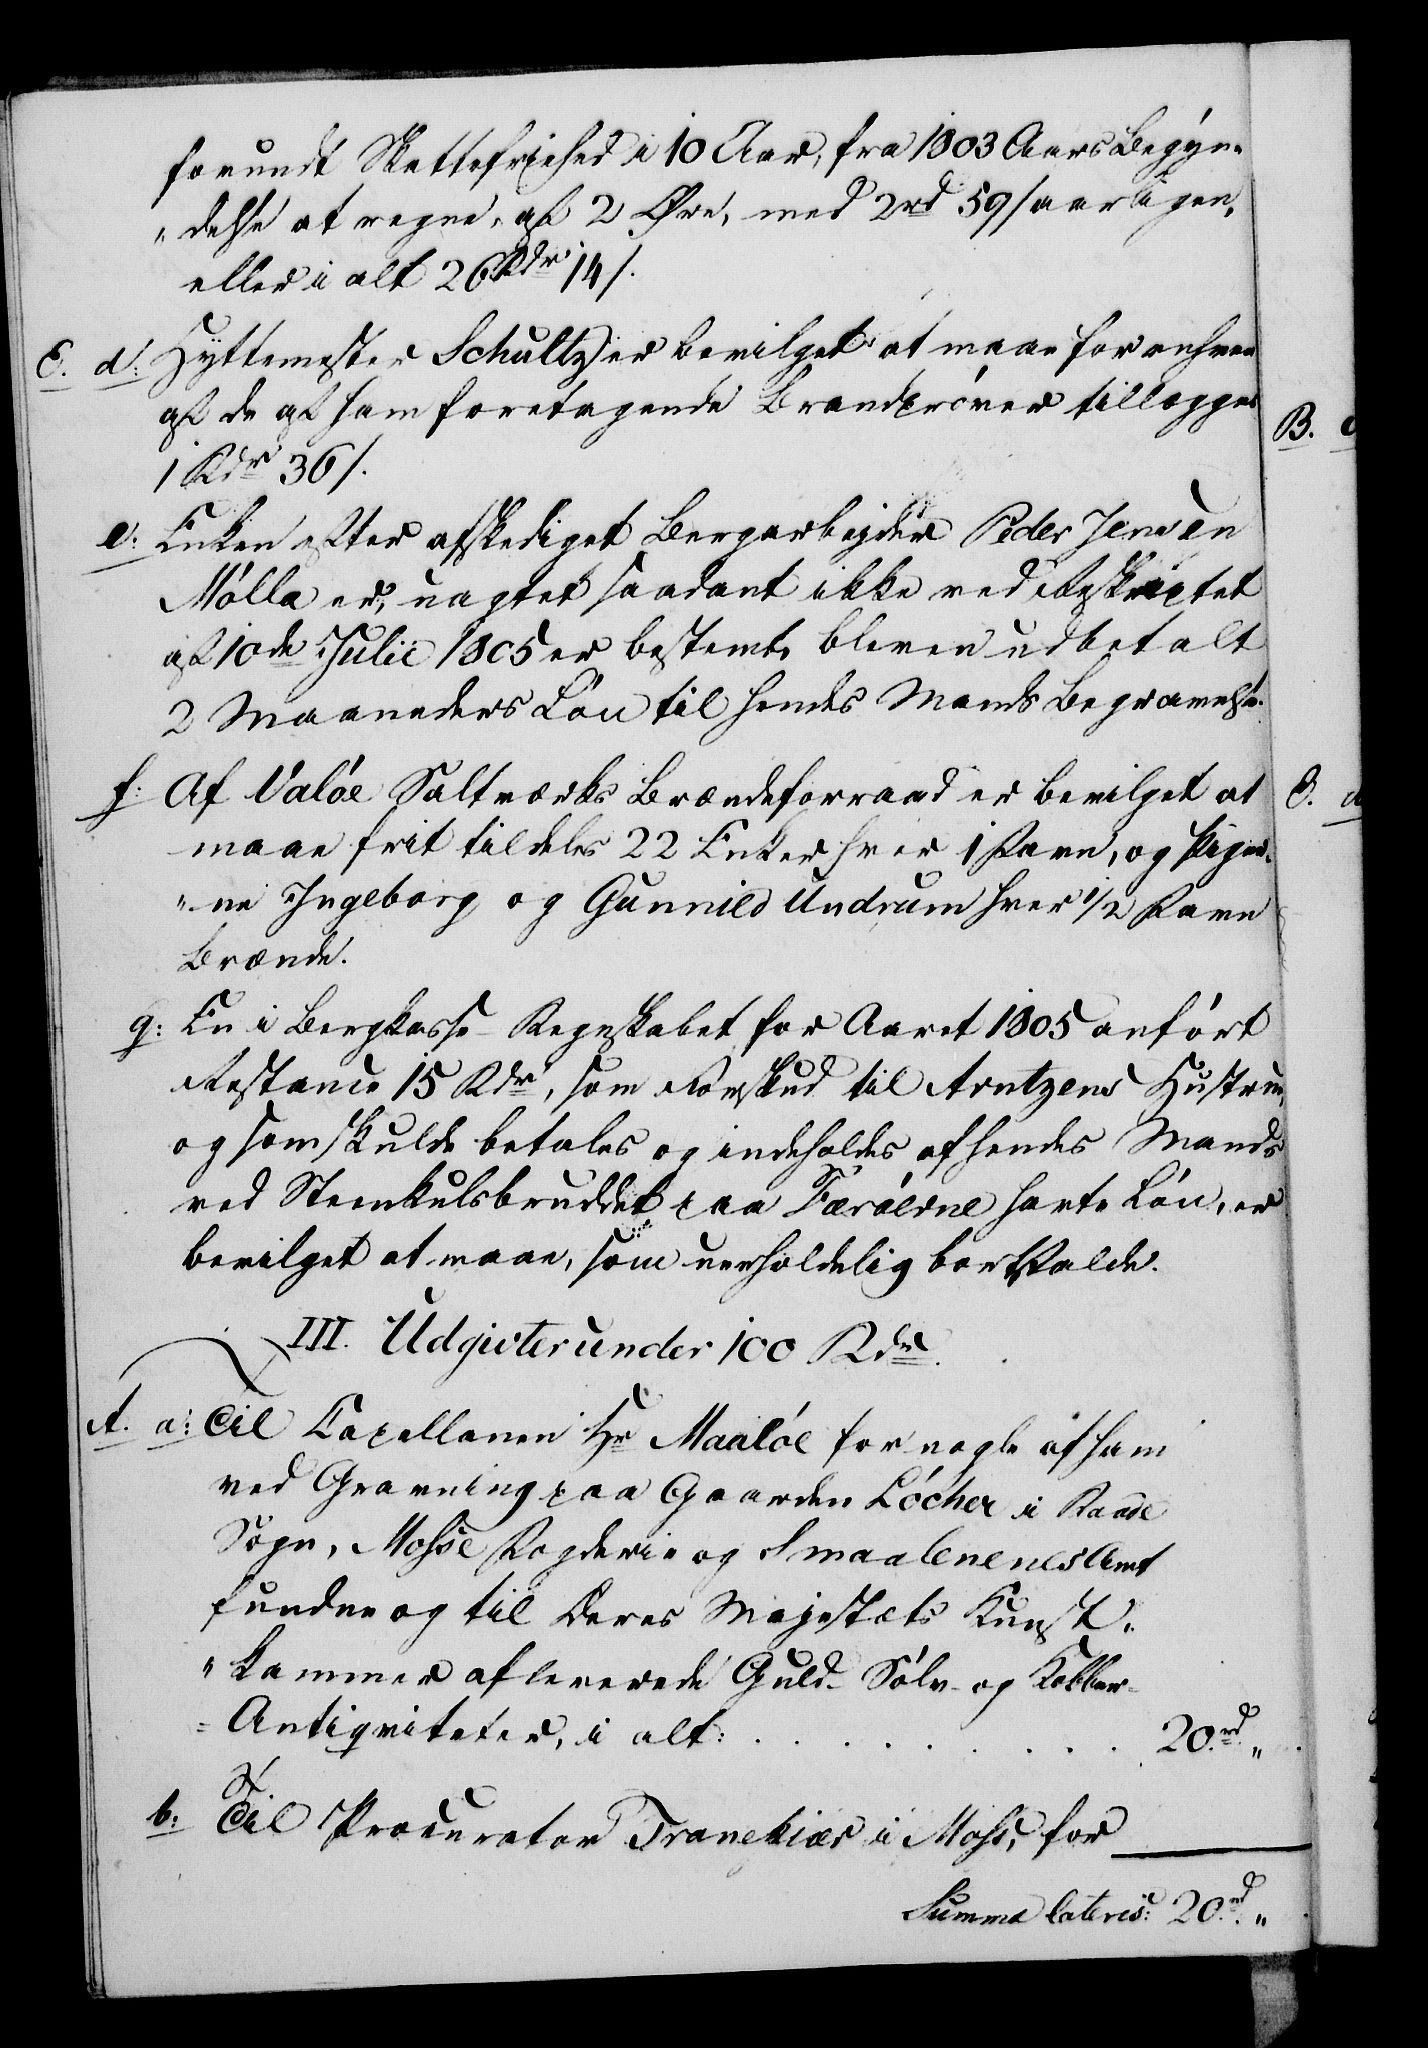 forundt Skattefriehed i 10 Aar, fra 1803 Aars Begyn-
"delse at regne, af 2 Øre, med 2rd 59 s aarligen,
eller i alt 26 Rdr 14 s.
C. d: Hyttemester Schultz er bevilget at maae for enhver
af de af ham foretagende Brandpröver tillægges
1 Rdr 36 s.
e: Enken efter afskediget Bergarbeyder Peder Jensen
Mölla er, uagtet saadant ikke ved Reskriptet
af 10de Julii 1805 er bestemt, bleven udbetalt
2 Maaneders Lön til hendes Mands Begravelse.
f: Af Valöe Saltværks Brændeforraad er bevilget at
maae frit tildeles 22 Enker hver 1 Favn, og Piger-
"ne Ingeborg og Gunnild Undrum hver 1/2 Favn
Brænde.
g: En i Bergkasse-Regnskabet for Aaret 1805 anfört
Restance 15 Rdr, som Forskud til Arntzens Hustrue,
og som skulde betales og indeholdes af hendes Mands
ved Steenkulsbruddet paa Færöerne havte Lön, er
bevilget at maae, som uerholdelig bortfalde.
III. Udgivter under 100 Rdr.
A. a: Til Capellanen Hr Maalöe for nogle af ham
ved Gravning paa Gaarden Löcher i Raade
Sogn, Mosse Fogderie og Smaalenenes Amt
fundne og til Deres Majestæts Kunst-
"kammer afleverede Guld- Sölv- og Kobber-
=Antiqviteter, i alt: . . . . . . . . . . 20 rd "
b: Til Procurator Tranekiær i Moss, for
Summa lateris: 20 rd "
B.
C.